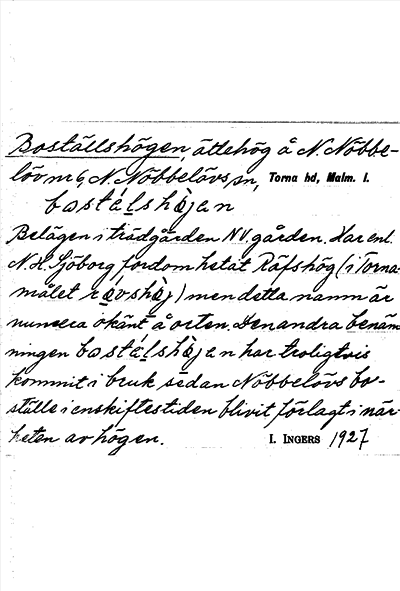 Boställshögen, ättehög å N. Nöbbe-
löv nr 6, N. Nöbbelövs sn, Torna hd, Malm. l.
bostálshǫ̀jen
Belägen i trädgården NV. gården. Har enl.
N. H. Sjöborg fordom hetat Räfshög (i Torna-
målet rævshǫ̀j) men detta namn är
numera okänt å orten. Den andra benäm-
ningen bostálshǫ̀jen har troligtvis
kommit i bruk sedan Nöbbelövs bo-
ställe i enskiftestiden blivit förlagt i när-
heten av högen.
I. INGERS 1927